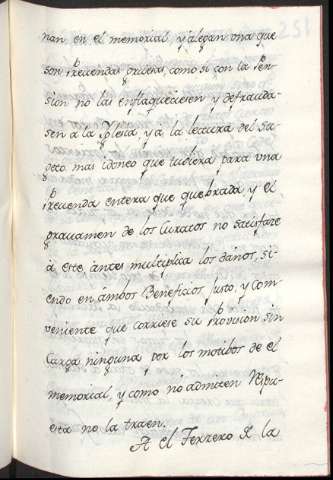 251
nan, en el memorial, y alegan una que
son Prevendas gruesas, como si con la Pen-
sion no las enflaqueciesen y defrauda-
sen a la Yglesia y a la lectura del Su-
geto mas idoneo que tubiera para una
Prevenda entera que quebrada y el
gravamen de los Curatos no satisface
à este, àntes multiplica los dànos, si-
endo en àmbos Beneficios justo, y com-
veniente que corriese su Provision sin
Carga ninguna por los motibos de el
memorial, y como no admiten Respu-
esta no la traen.
A el Terzero de la